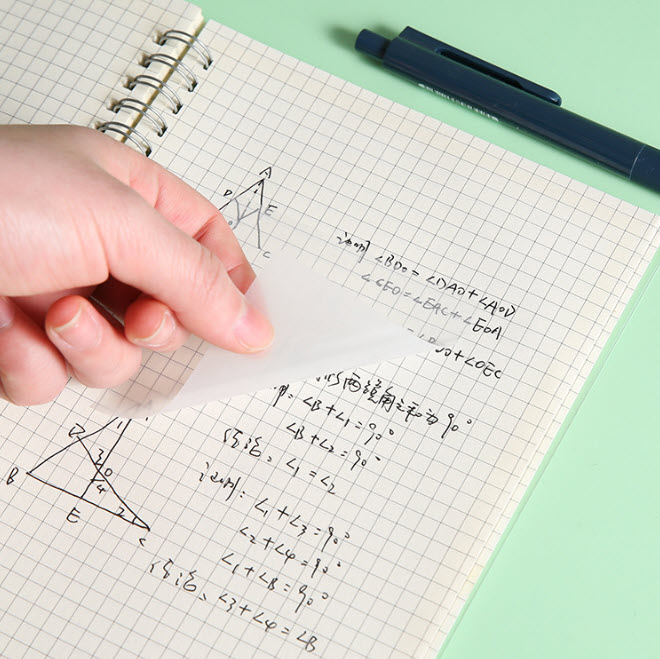 A
D
E
C
证明 ∠BDO = ∠DAO + ∠AOD
∠CEO = ∠EAC + ∠EOA
+ ∠OEC
两锐角之和为90°
∠B + ∠1 = 90°
∠B + ∠2 = 90°
结论: ∠1 = ∠2
证明: ∠1 + ∠3 = 90°
∠2 + ∠4 = 90°
∠1 + ∠B = 90°
结论: ∠3 + ∠4 = ∠B
1
D
3
O
4
B
E
2
C